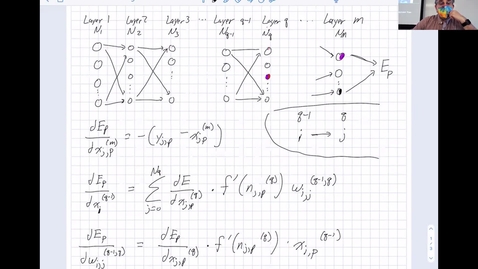 Layer 1 Layer 2 Layer 3 ... Layer q-1 Layer q ... Layer m
N₁ N₂ N₃ N_{q-1} N_q N_m
E_p
q-1 q
i → j
dE_p/dx_{j,p}^{(m)} = -(y_{j,p} - x_{j,p}^{(m)})
dE_p/dx_i^{(q-1)} = Σ_{j=0}^{N_q} dE/dx_{j,p}^{(q)} · f'(n_{j,p}^{(q)}) w_{i,j}^{(q-1,q)}
dE_p/dw_{i,j}^{(q-1,q)} = dE_p/dx_{j,p}^{(q)} · f'(n_{j,p}^{(q)}) · x_{i,p}^{(q-1)}